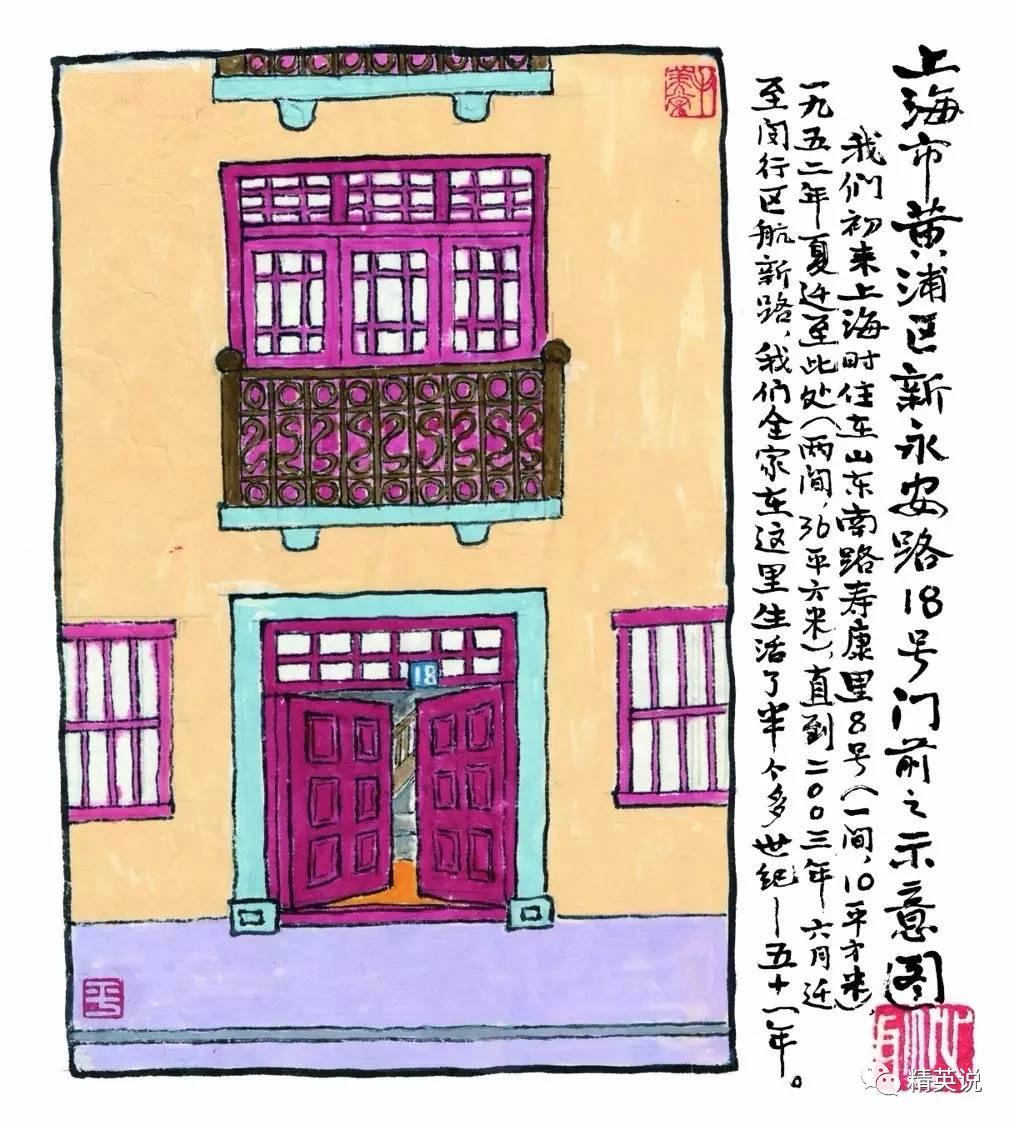 上海市黄浦区新永安路18号门前之示意图
我们初来上海时住在山东南路寿康里8号(一间,10平方米),
一九五二年夏迁至此处(两间,36平方米),直到二〇〇三年六月迁
至闵行区航新路,我们全家在这里生活了半个多世纪—五十一年。
18
平
精英说